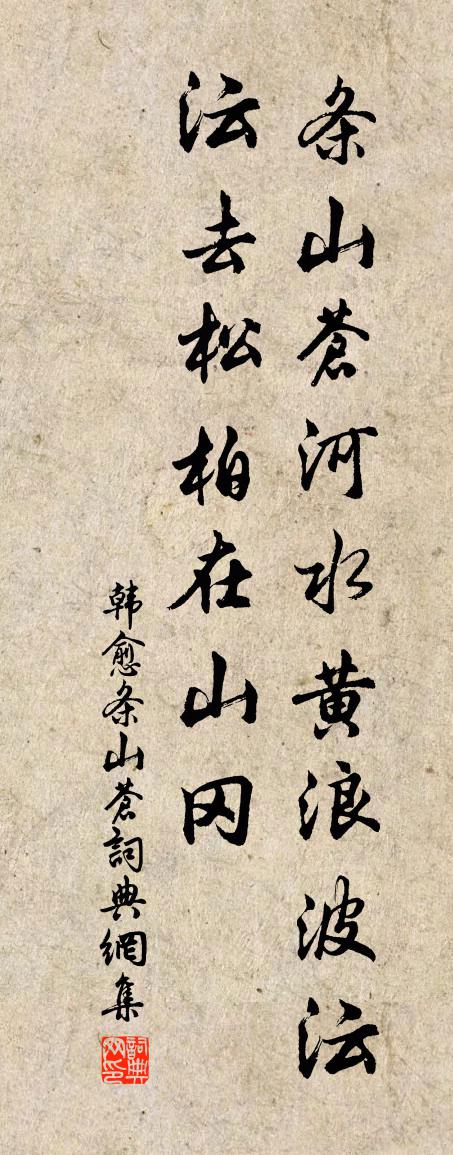 条山蒼河水黄浪波沄
沄去松柏在山冈
韩愈条山蒼詞典網集
詞典网印